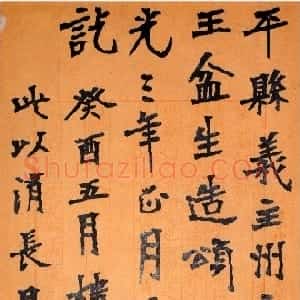 平縣義主州
王盆生造頌
光三年正月
訖
癸酉五月
此以消長
Shufaziliao.com